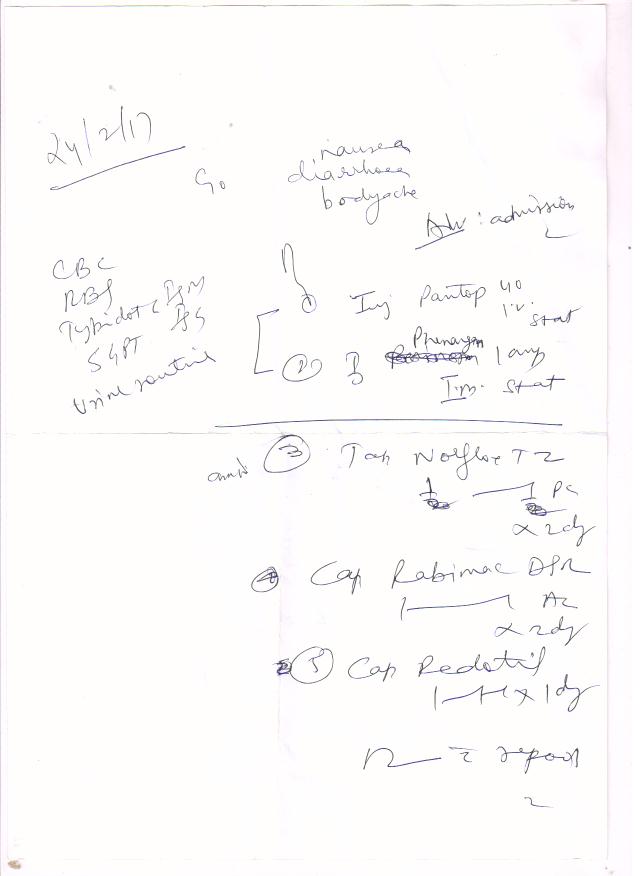 24/2/17
C/o nausea
diarrhoea
bodyache
Adv: admission
CBC
RBS
Typhidot c IgM
IgG
SGPT
Urine routine
① Inj Pantop 40
i.v. stat
② I Phenargn 1 amp
I.m. stat
③ Tab Norflox TZ
1 — 1 PC
x 2dy
④ Cap Rabimac DSR
1 — 1 AC
x 2dy
⑤ Cap Redotil
1—1—1 x 1dy
R — c report